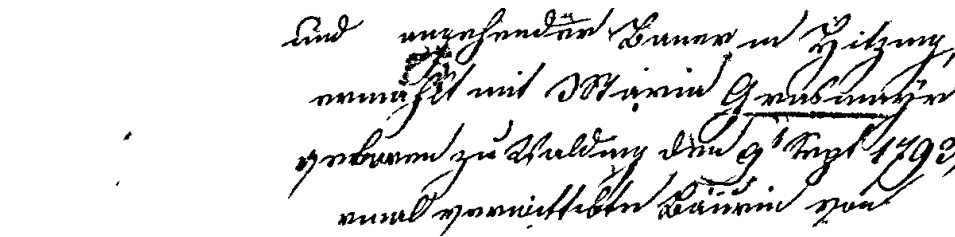 und angehender Bauer in Hitzing,
ermählt mit Maria Grasmayr
geboren zu Walding den 9t Sept 1793,
rmal verwittibte Bäurin von